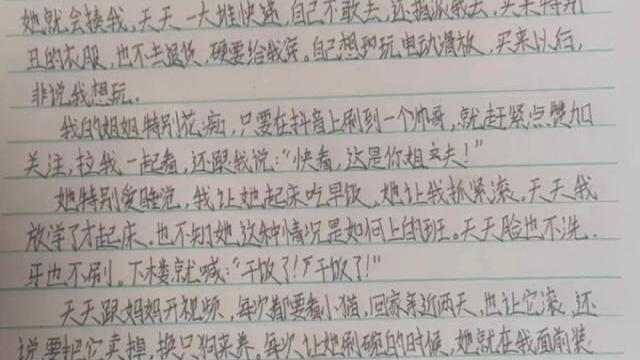 她就会揍我,天天一大堆快递,自己不敢去,还指派我去,买来特别
丑的衣服,也不去退货,硬要给我穿。自己想要玩电动滑板,买来以后,
非说我想玩。
我的姐姐特别花痴,只要在抖音上刷到一个帅哥,就赶紧点赞加
关注,拉我一起看,还跟我说:“快看,这是你姐夫!”
她特别爱睡觉,我让她起床吃早饭,她让我抓紧滚。天天我
放学了才起床,也不知她这种情况是如何上的班。天天脸也不洗,
牙也不刷。下楼就喊:“干饭了!干饭了!”
天天跟妈妈开视频,每次都要看小猫,回家亲近两天,也让它滚,还
说要把它卖掉,换只狗来养。每次让她刷碗的时候,她就在我面前装